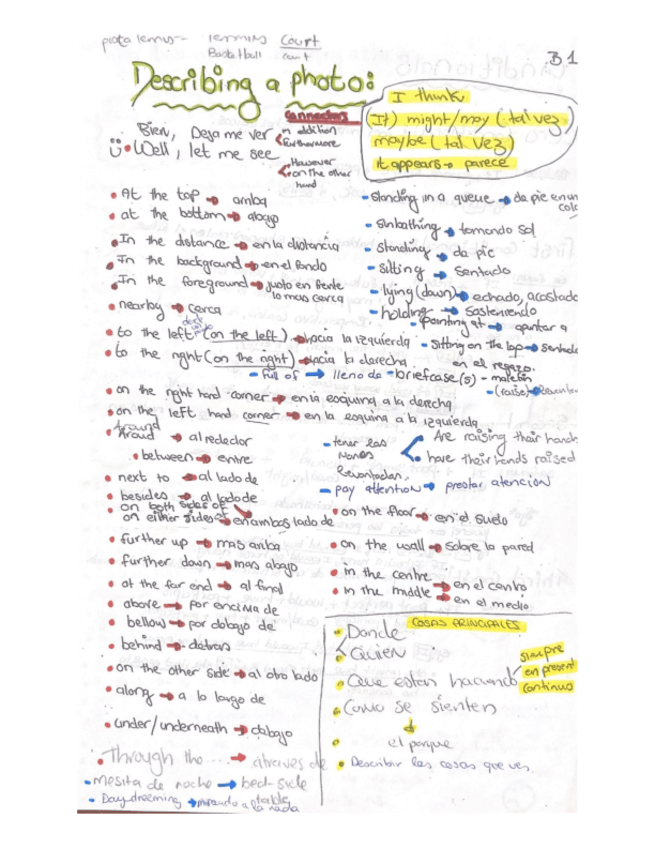 tennis Court
Basketball court
B1
Describing a photo:
Connectors
Bien, Deja me ver
Well, let me see
in addition
furthermore
However
on the other hand
I think
(It) might/may (tal vez)
maybe (tal vez)
it appears → parece
At the top → arriba
at the bottom → abajo
In the distance → en la distancia
In the background → en el fondo
In the foreground → justo en frente
lo mas cerca
nearby → cerca
to the left (on the left) → hacia la izquierda
to the right (on the right) → hacia la derecha
- standing in a queue → de pie en un
cola
- sunbathing → tomando sol
- standing → de pie
- sitting → sentado
- lying (down) → echado, acostado
- holding → sosteniendo
- pointing at → apuntar a
- sitting on the lap → sentado
en el regazo.
- full of → lleno de
- briefcase(s) - maletin
- (raise) →
on the right hand corner → en la esquina a la derecha
on the left hand corner → en la esquina a la izquierda
Around
Aroud → al rededor
between → entre
next to → al lado de
besides → al lado de
on both sides of
on either sides of → en ambos lado de
- tener las
manos
levantadas.
Are raising their hands
have their hands raised
- pay attention → prestar atención
further up → mas arriba
further down → mas abajo
at the far end → al final
above → por encima de
bellow → por debajo de
behind → detras
on the other side → al otro lado
along → a lo largo de
under/underneath → debajo
Through the .... → atraves de
- mesita de noche → bed side
table
- Day dreeming → mirando a la nada
on the floor → en el suelo
on the wall → sobre la pared
in the centre → en el centro
in the middle → en el medio.
COSAS PRINCIPALES
Donde
Quien
Que estan haciendo
siempre
en present
continuo
Como se sienten
el porque
Describir las cosas que ves.